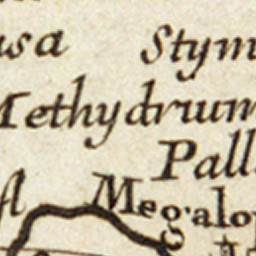 usa Stym
Methydrium
Pall
Megalop